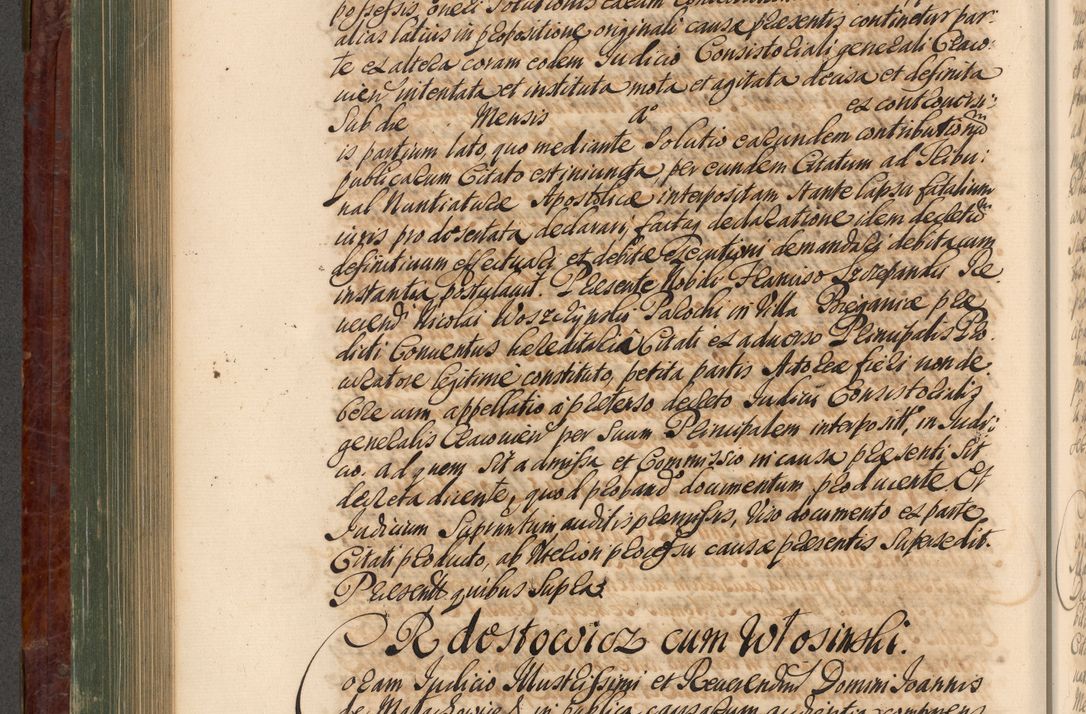 alias latius in propositione originali causae praesentis continetur par
te ex altera coram eodem Judicio Consistoriali generali Craco
vien intentata et instituta mota et agitata decisa et definita
Sub die Mensis aº ex controversi
is partium lato quo mediante Solutio earundem contributionũ
publicarum Citato est iniuncta, per eundem Citatum ad Tribu
nal Nuntiaturae Apostolicae interpositam Stante lapsu fatalium
iuris pro deserta declarari, factaq declaratione idem decretũ
definitivum effectuari et debitae Executioni demandari debita cum
instantia postulavit. Praesente Nobili Francisco Szczepanski Re
verend Nicolai Woszczynski Parochi in Villa Breganice prae
dicti Conventus haereditaria Citati ex adverso Principalis Pro
curatore legitime constituto, petita partis Actoreae fieri non de
bere cum appellatio a praetenso decreto Judicii Consistorialis
generalis Cracovien per Suum Principalem interposit, in Judi
cio ad quem Sit admissa et Commissio in causa praesenti Sit
decreta dicente, quod probando documentum producente. Et
Judicium Supruntum auditis praemissis, Viso documento ex parte
Citati producto, ab Ulteriori processu causae praesentis Supersedit.
Presentt quibus Supra
Rdostowicz cum Włosinski.
oram Judicio Illustrissimi et Reverendmi Domini Joannis
in publica causarum audientia comparens